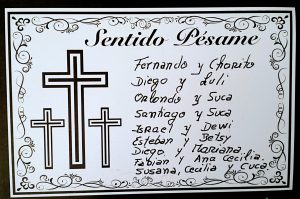 Sentido Pésame
Fernando y Charito
Diego y Luli
Orlando y Suca
Santiago y Suca
Israel y Dewi
Esteban y Betsy
Diego y Mariana
Fabian y Ana Cecilia.
Susana, Cecilia y Cuca